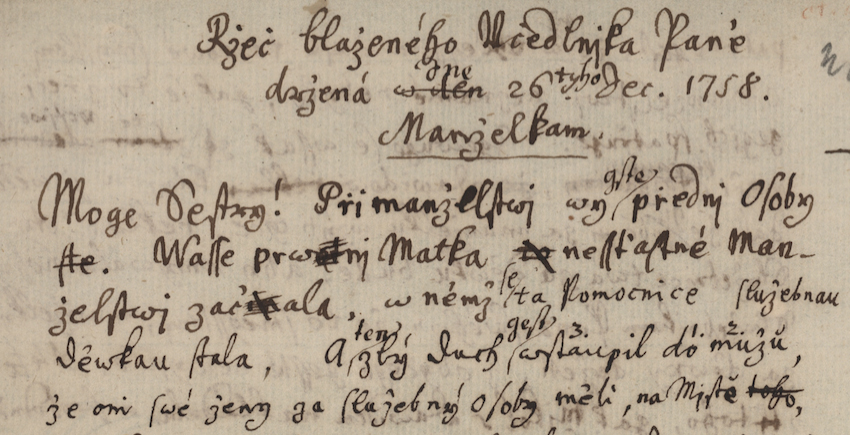 Rzeč blaženého Učedlnjka Páně
držená w den dne 26tyho Dec. 1758.
Manželkam.
Moge Sestry! Při manželstwj wy gste přednj Osoby
ste. Wasse prwnj Matka to nessťastné Man-
želstwj začala, w němž se ta Pomocnice služebnau
děwkau stala, A ten zlý duch gest wstaupil do mužů,
že oni swé ženy za služebný Osoby měli, na Mjstě toho,